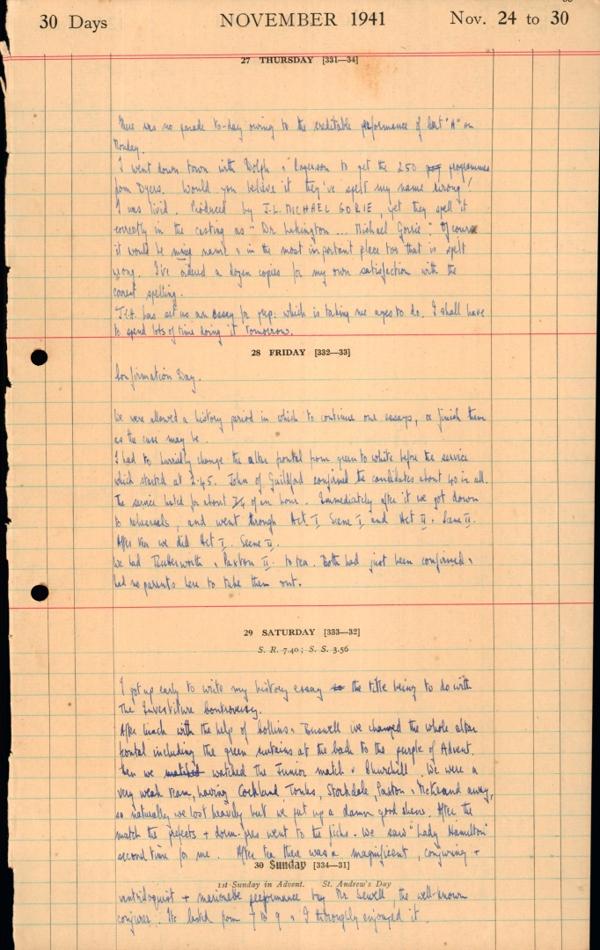 30 Days NOVEMBER 1941 Nov. 24 to 30
27 THURSDAY [331—34]
There was no parade to-day owing to the creditable performance of Cert "A" on
Monday.
I went down town with Dolph & Rogerson to get the 250 programmes
from Dyers. Would you believe it they've spelt my name wrong!
I was livid. Produced by J.L. MICHAEL GORIE, yet they spell it
correctly in the casting as "Dr. Lukington ... Michael Gorrie". Of course
it would be mine name & in the most important place too that is spelt
wrong. I've ordered a dozen copies for my own satisfaction with the
correct spelling.
has set us an essay for prep: which is taking me ages to do. I shall have
to spend lots of time doing it tomorrow.
28 FRIDAY [332—33]
Confirmation Day.
We were allowed a history period in which to continue our essays, or finish them
as the case may be.
I had to hurriedly change the altar frontal from green to white before the service
which started at 2.45. John of Guildford confirmed the candidates about 40 in all.
The service lasted for about 3/4 of an hour. Immediately after it we got down
to rehearsals, and went through Act I Scene I and Act II. Scene II.
After tea we did Act I. Scene II.
We had & Paxton II to tea. Both had just been confirmed &
had no parents here to take them out.
29 SATURDAY [333—32]
S. R. 7.40; S. S. 3.56
I got up early to write my history essay the title being to do with
The Investiture Controversy.
After lunch with the help of Hollins & Buswell we changed the whole altar
frontal including the green curtains at the back to the purple of Advent.
Then we watched the Junior match v Churchill. We were a
very weak team, having Cockland, Tonks, Stockdale, Paxton & away,
so naturally we lost heavily but we put up a damn good show. After the
match the prefects + dorm-pres went to the flicks. We saw "Lady Hamilton"
second time for me. After tea there was a magnificent, conjuring +
30 Sunday [334—31]
1st Sunday in Advent. St. Andrew's Day
ventriloquist + marionette performance by Mr Sewell the well-known
conjurer. It lasted from 7 to 9 & I thoroughly enjoyed it.